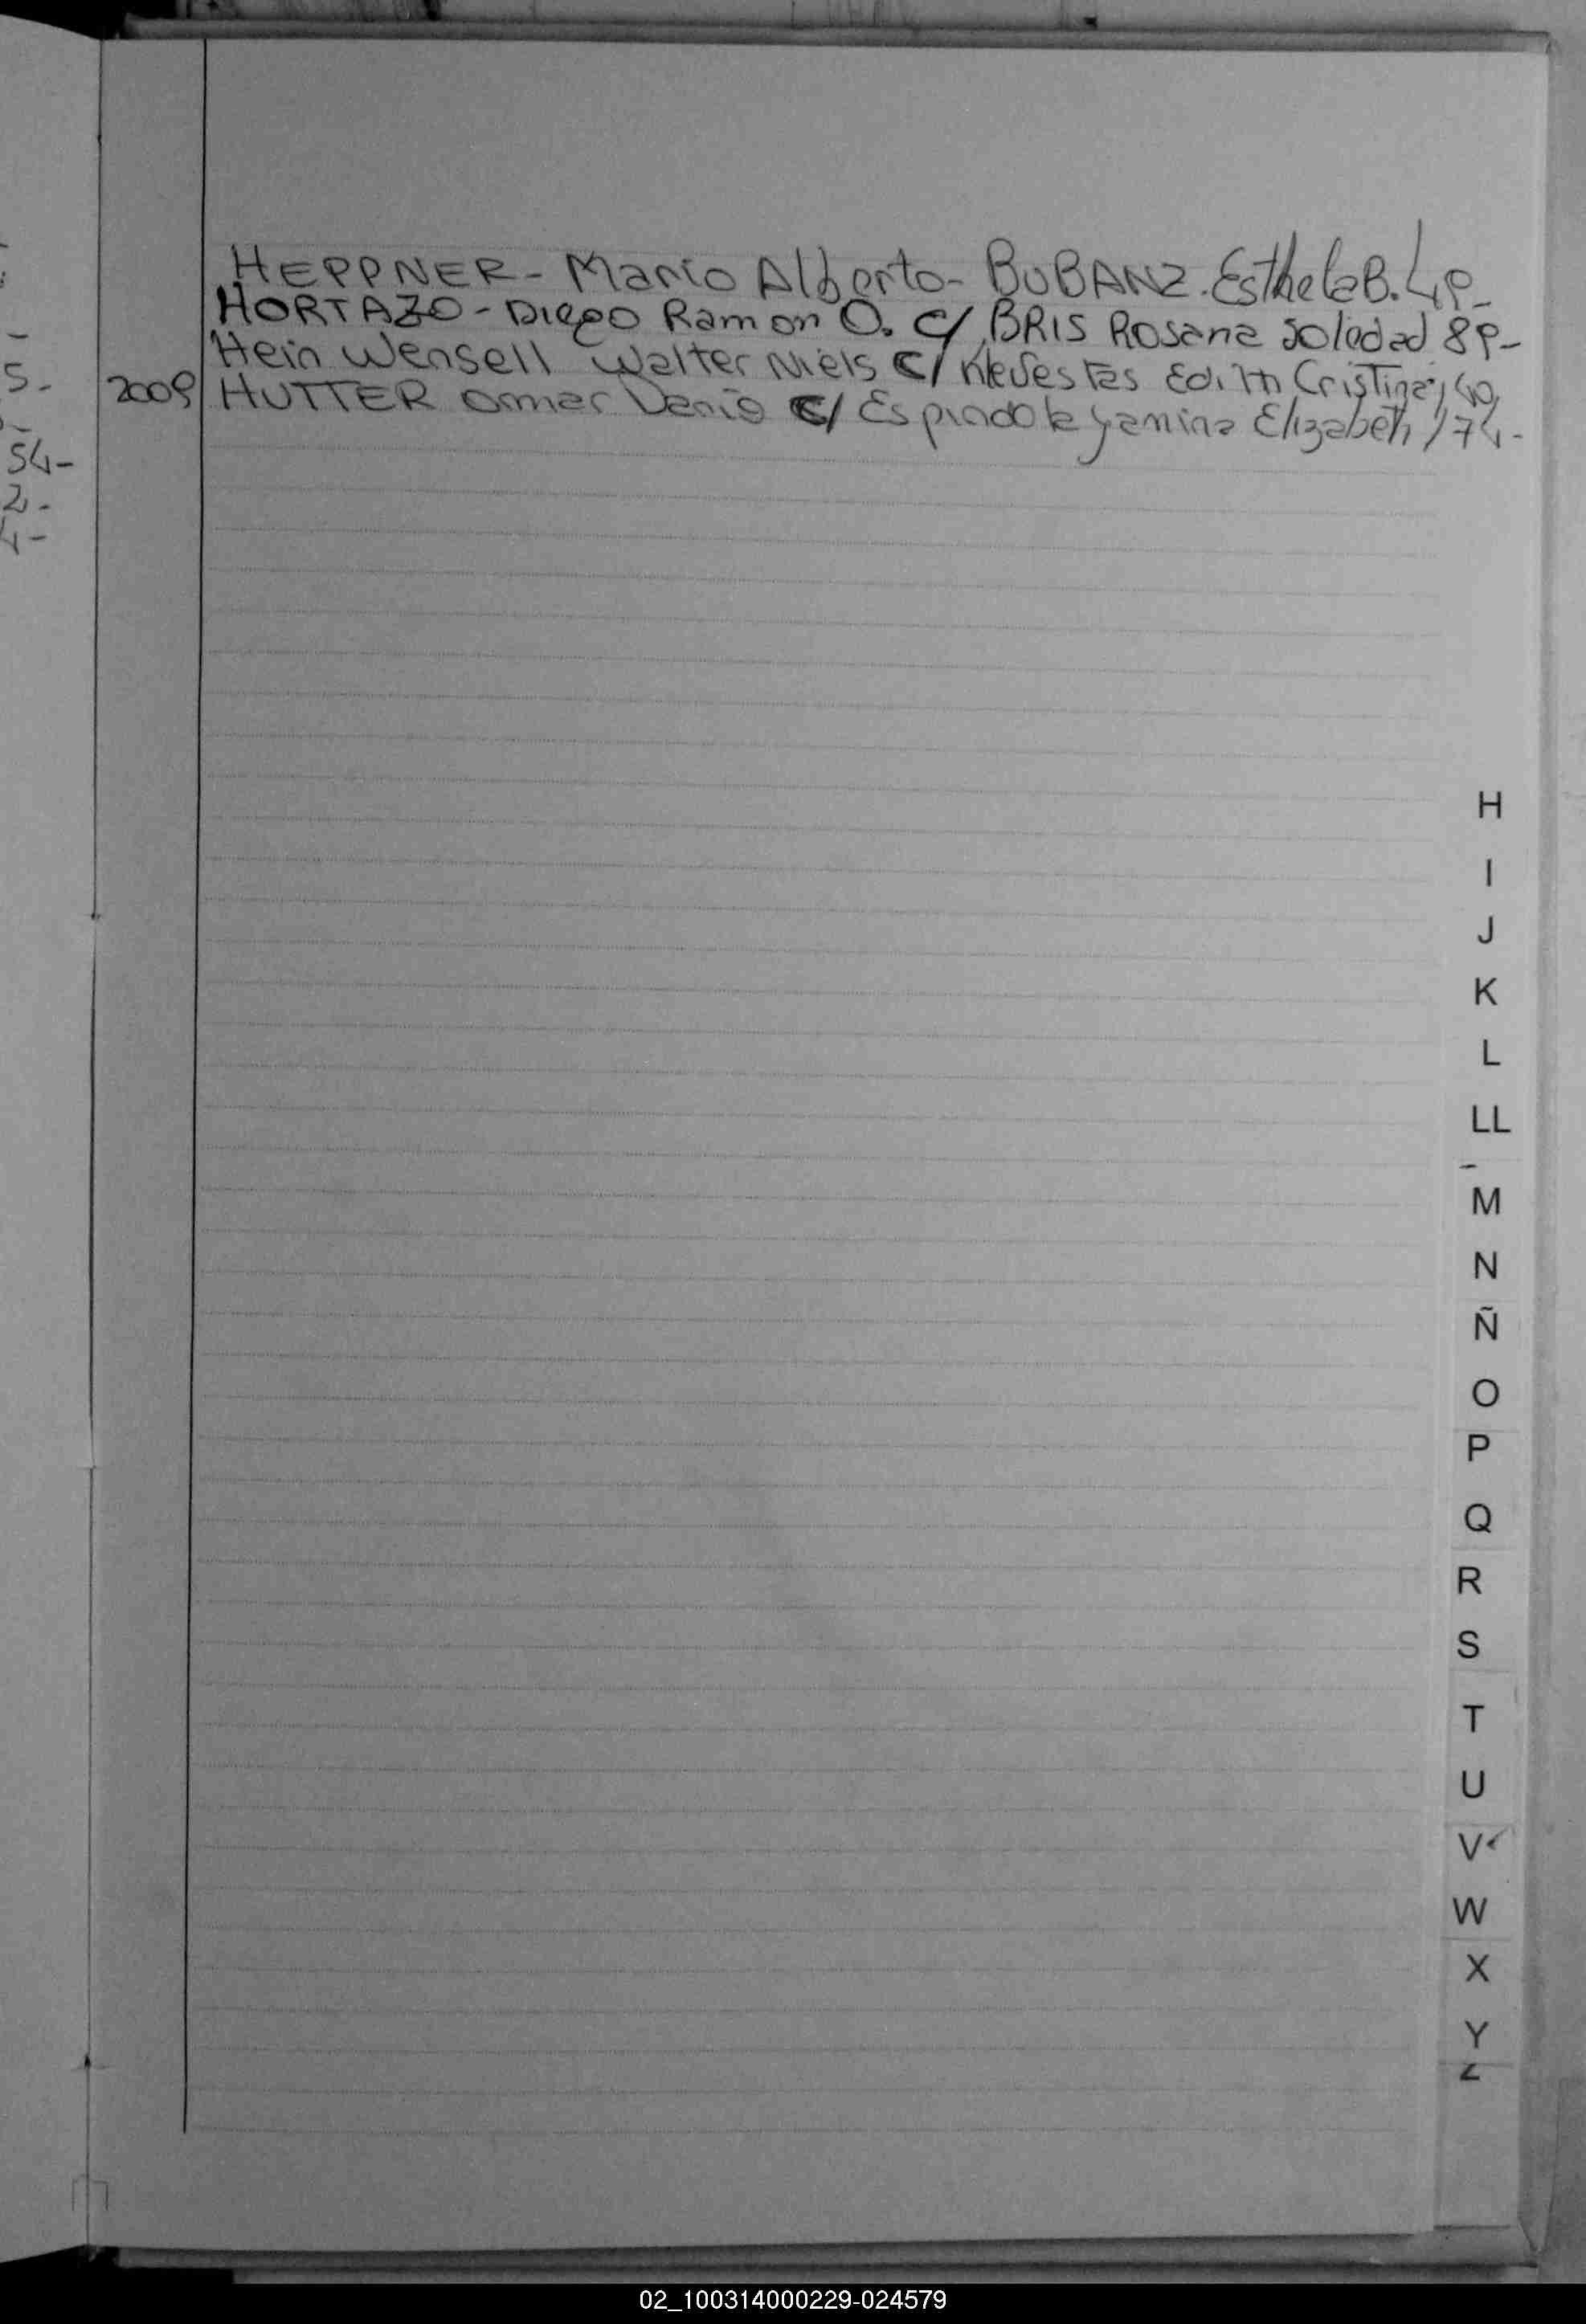 HEPPNER - Mario Alberto - BUBANZ. Esthela B. 49-
HORTAZO - Diego Ramon O. C/ BRIS Rosana Soledad 89-
Hein Wensell Walter Niels C/ Edith Cristina, 40,
2009 HUTTER Omar Dario C/ Espindola Yamina Elizabeth, 74-
5-
54-
2-
4-
H
I
J
K
L
LL
M
N
Ñ
O
P
Q
R
S
T
U
V
W
X
Y
Z
02_100314000229-024579